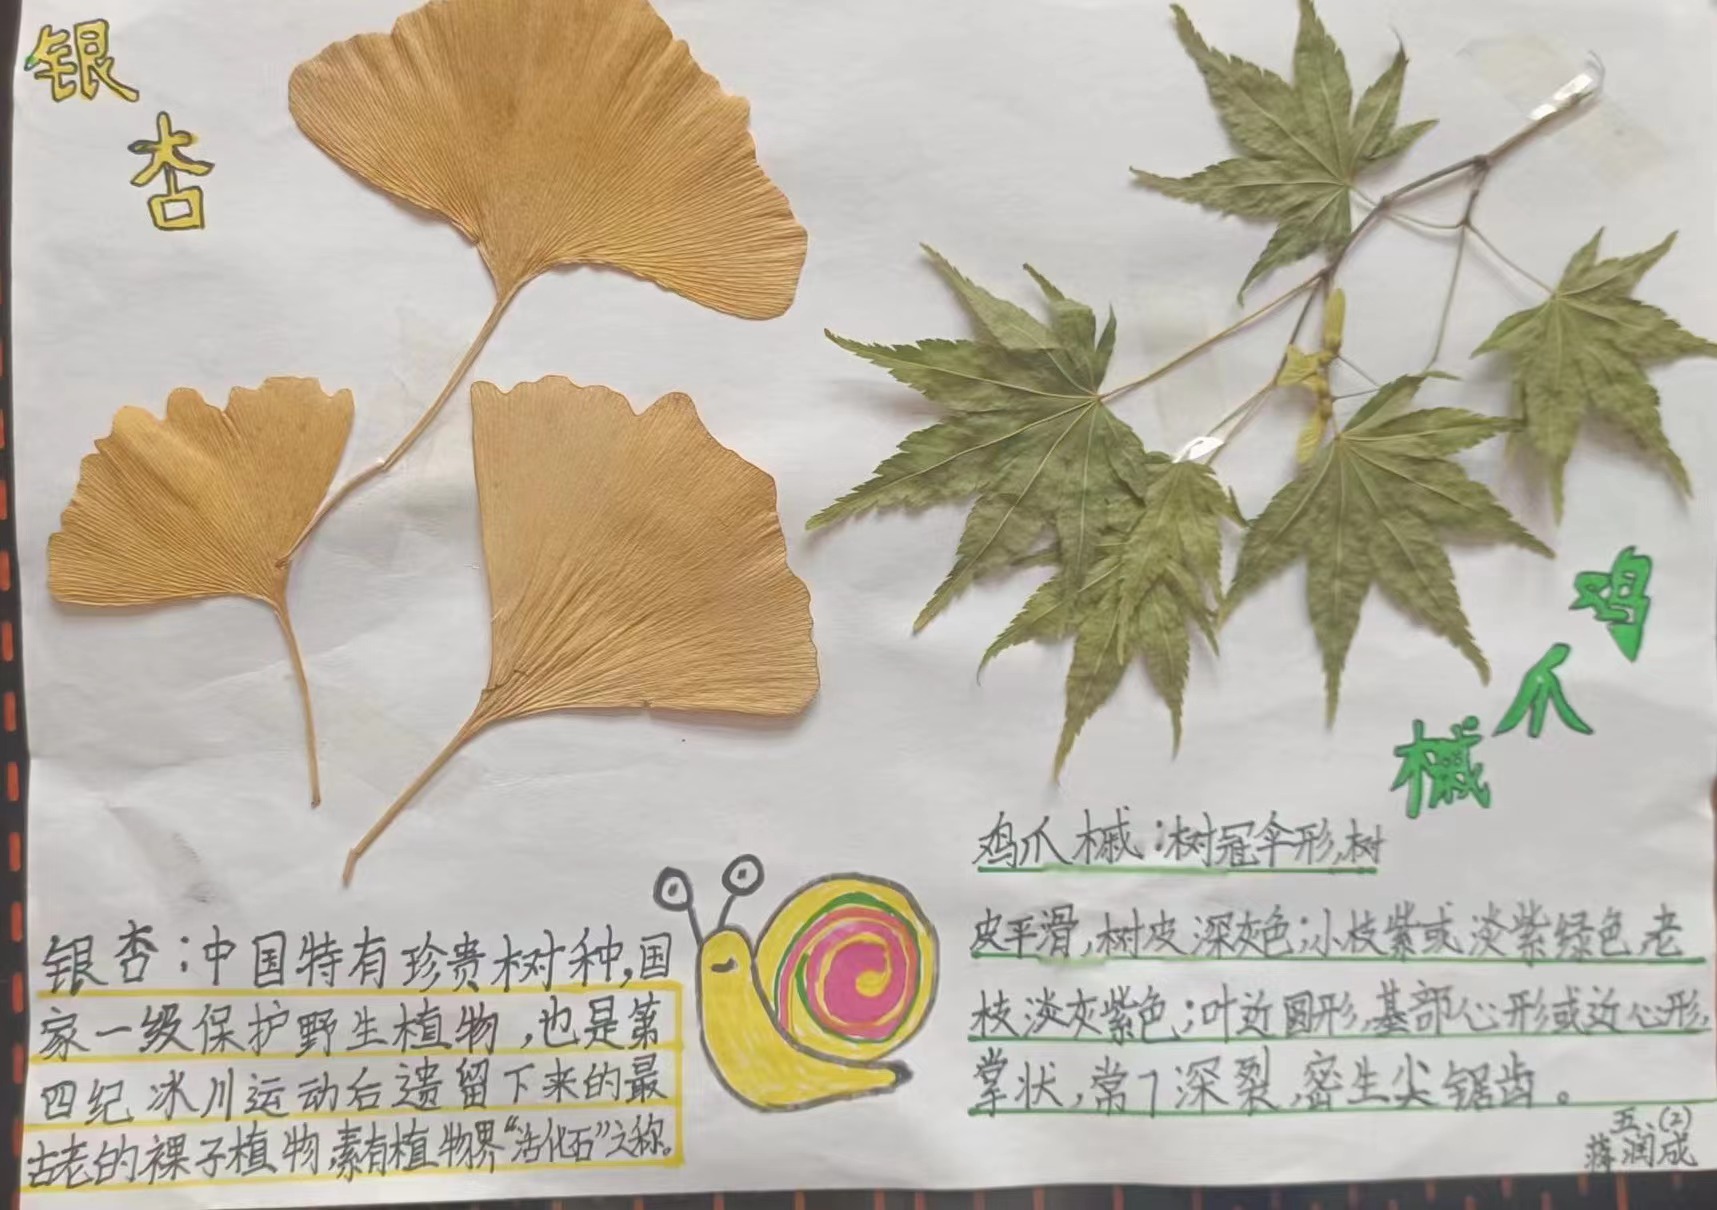 银
杏
鸡
爪
槭
银杏:中国特有珍贵树种,国
家一级保护野生植物,也是第
四纪冰川运动后遗留下来的最
古老的裸子植物,素有植物界“活化石”之称。
鸡爪槭:树冠伞形,树
皮平滑,树皮深灰色;小枝紫或淡紫绿色,老
枝淡灰紫色;叶近圆形,基部心形或近心形,
掌状,常7深裂,密生尖锯齿。
五、(2)
蒋润成